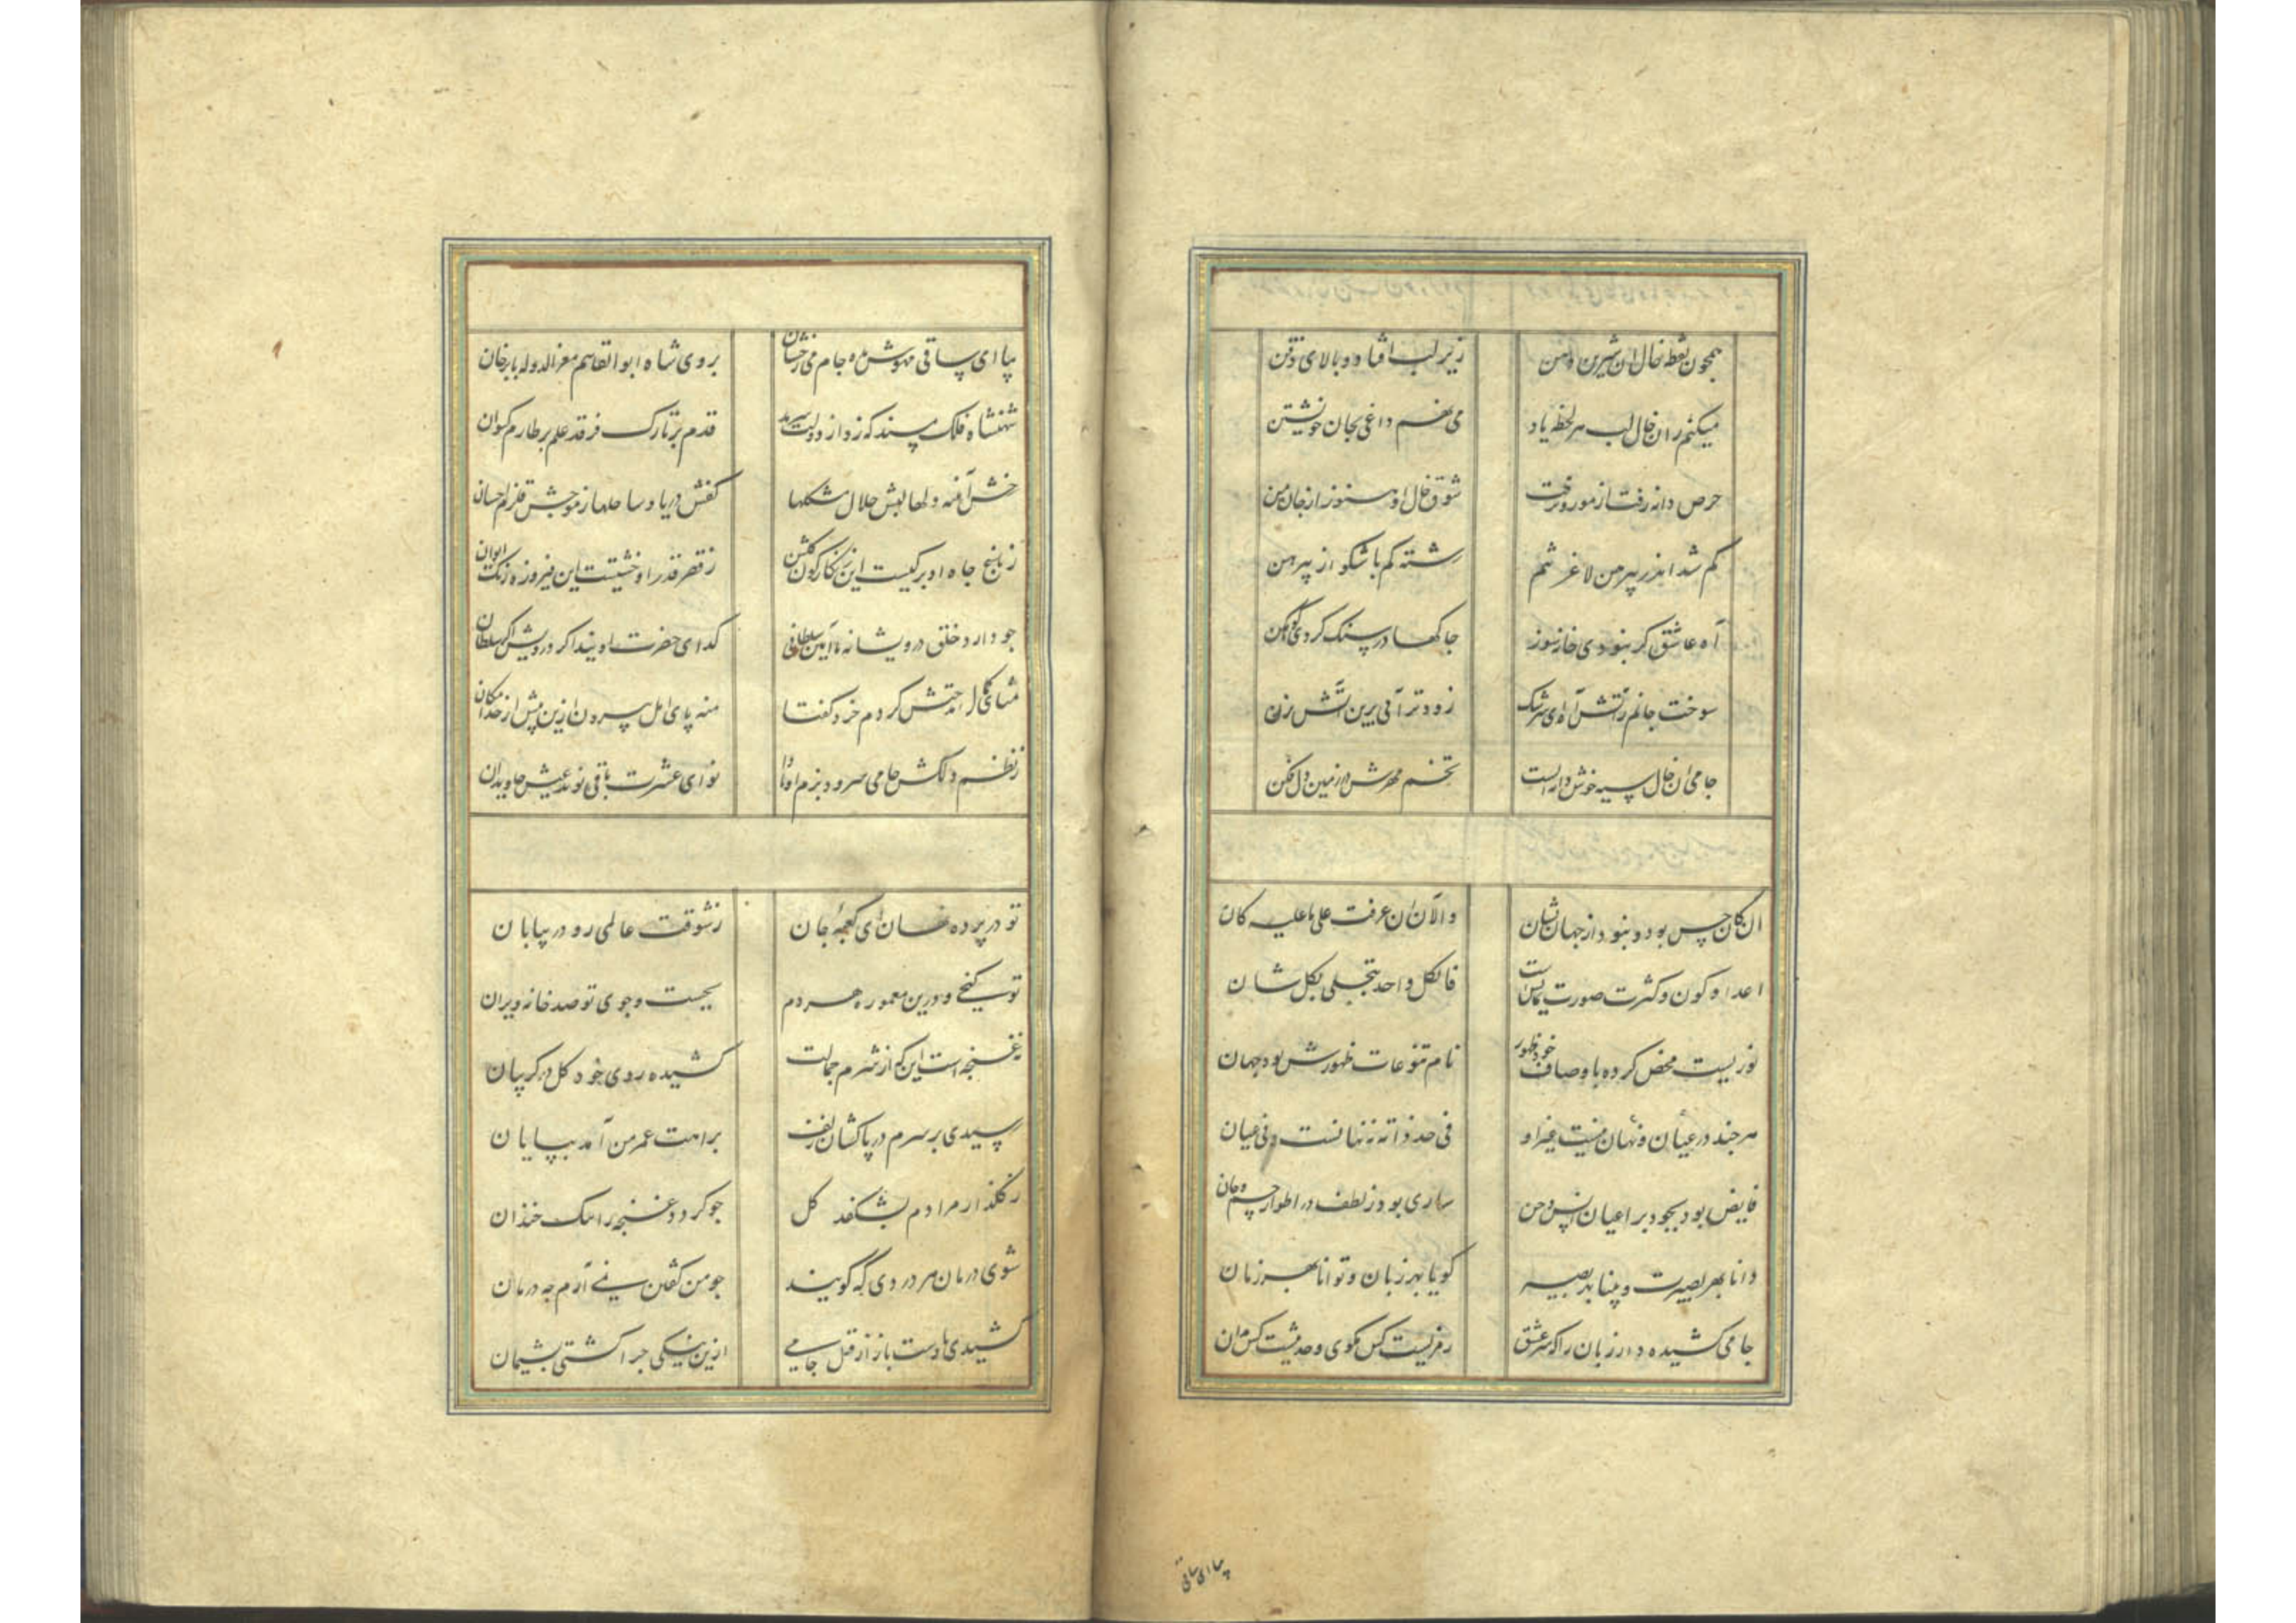 همچون نقطه خال ان شیرین دهن زیر لب افتاد و بالای ذقن
میکنم زان خال لب هر لحظه یاد می نهم داغی بجان خویشتن
حرص دانه رفت از مور و نرفت شوق خال او هنوز از جان من
کم شد اندر پیرهن لاغر تنم رشته کم باشد کو از پیرهن
آه عاشق کر نبودی خانه سوز جا کجا در سنک کردی کوهکن
سوخت جانم ز آتش آه ای سرشک زودتر آبی برین آتش بزن
جامی ان خال سیه خوش دانه ایست تخم مهرش در زمین دل فکن
ان کان حسن بود و نبود از جهان نشان و الآن ان عرفت علی ما علیه کان
اعداد کون و کثرت صورت نمایش است فالکل واحد یتجلی بکل شان
نوریست محض کرده باوصاف خود ظهور نام تنوعات ظهورش بود جهان
هر چند در عیان و نهان نیست غیر او فی حد ذاته نه نهانست و نی عیان
فایض بود بجود بر اعیان انس و جن ساری بود ز لطف در اطوار جسم و جان
دانا بهر بصیرت و بینا بهر بصیر کویا بهر زبان و توانا بهر زمان
جامی کشیده دار زبان را که سر عشق رمزیست کس مکوی و حدیثیست کس مدان
بیا ای ساقی
بیا ای ساقی مهوش بده جام می رخشان بروی شاه ابوالقاسم معزالدوله بابرخان
شهنشاه فلک مسند که زد از دولت سرمد قدم بر تارک فرقد علم بر طارم کیوان
رخش آئینه دلها لبش حلال مشکلها کفش دریا و ساحلها ز موجش قلزم احسان
ز باغ جاه او برکیست این زنکارکون کلشن ز قصر قدر او خشتیست این فیروزه رنک ایوان
جو دارد خلق درویشانه با آیین سلطانی کدای حضرت اویند اکر درویش اکر سلطان
ثنای کمال احتش کردم خرد کفتا منه پای امل بیرون ازین بیش از حد امکان
ز نظم دلکش جامی سرود بزم او بادا نوای عشرت باقی نوید عیش جاویدان
تو در پرده نهان ای کعبه جان ز شوقت عالمی رو در بیابان
تویی کنجی و درین معموره هر دم بجست و جوی تو صد خانه ویران
نه غنجه است این که از شرم جمالت کشیده روی خود کل در کریبان
رسیدی بر سرم در پا کشان زلف براهت عمر من آمد بپایان
ز کلزار مرادم بشکفد کل جو کردد غنجه رانک خندان
شوی درمان هر دردی که کویند جو من کفتن نمی آرم جه درمان
کشیدی باز دست از قتل جامی ازین نیکی جرا کشتی پشیمان